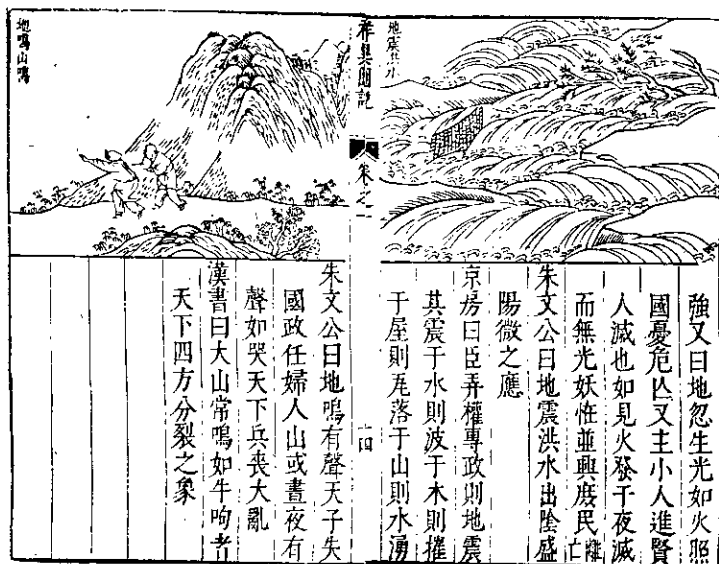 地震洪水
強又曰地忽生光如火照
國憂危亾又主小人進賢
人滅也如見火發于夜滅
而無光妖恠並興庶民離亡
朱文公曰地震洪水出陰盛
陽微之應
京房曰臣弄權專政則地震
其震于水則波于木則摧
于屋則瓦落于山則水湧
卷之一
十四
地鳴山鳴
朱文公曰地鳴有聲天子失
國政任婦人山或晝夜有
聲如哭天下兵喪大亂
漢書曰大山常鳴如牛呴者
天下四方分裂之象